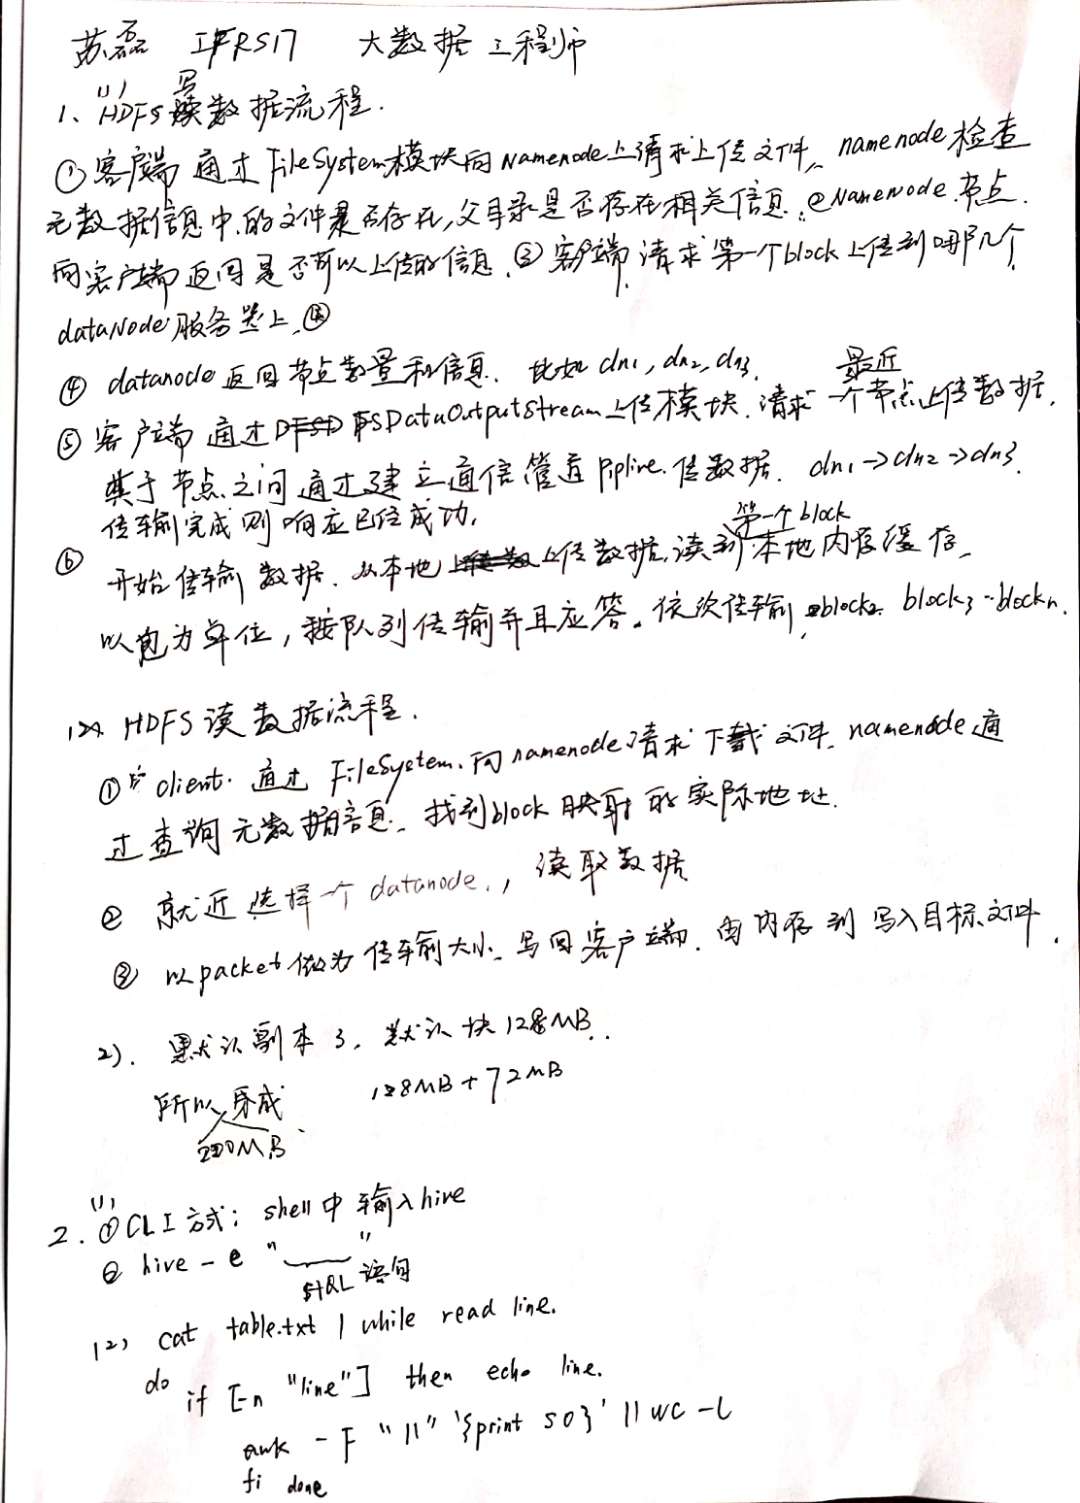 苏磊 IFRS17 大数据工程师
1、(1) HDFS写数据流程.
①客户端通过FileSystem模块向Namenode上请求上传文件, namenode检查
元数据信息中的文件是否存在,父目录是否存在相关信息.②Namenode节点
向客户端返回是否可以上传的信息.③客户端请求第一个block上传到哪几个
dataNode服务器上.④
④ datanode返回节点数量和信息. 比如dn1, dn2, dn3.
⑤ 客户端通过FSDataOutputStream上传模块.请求最近一个节点上传数据.
其于节点之间通过建立通信管道Pipline.传数据. dn1→dn2→dn3.
传输完成则响应已经成功.
⑥ 开始传输数据.从本地上传数据,读到第一个block本地内存缓存.
以包为单位,按队列传输并且应答。依次传输block2 block3…blockn.
(2) HDFS读数据流程.
① client.通过FileSystem.向namenode请求下载文件.namenode通
过查询元数据信息.找到block映射的实际地址.
② 就近选择一个datanode.,读取数据
③ 以packet做为传输大小.写回客户端.由内存到写入目标文件.
2). 默认副本3.默认块128MB..
所以 200MB 存成 128MB+72MB
2. (1) ①CLI方式:shell中输入hive
② hive -e " "
HQL语句
(2) cat table.txt | while read line.
do if [-n "line"] then echo line.
awk -F "||" '{print $0}' || wc -l
fi done